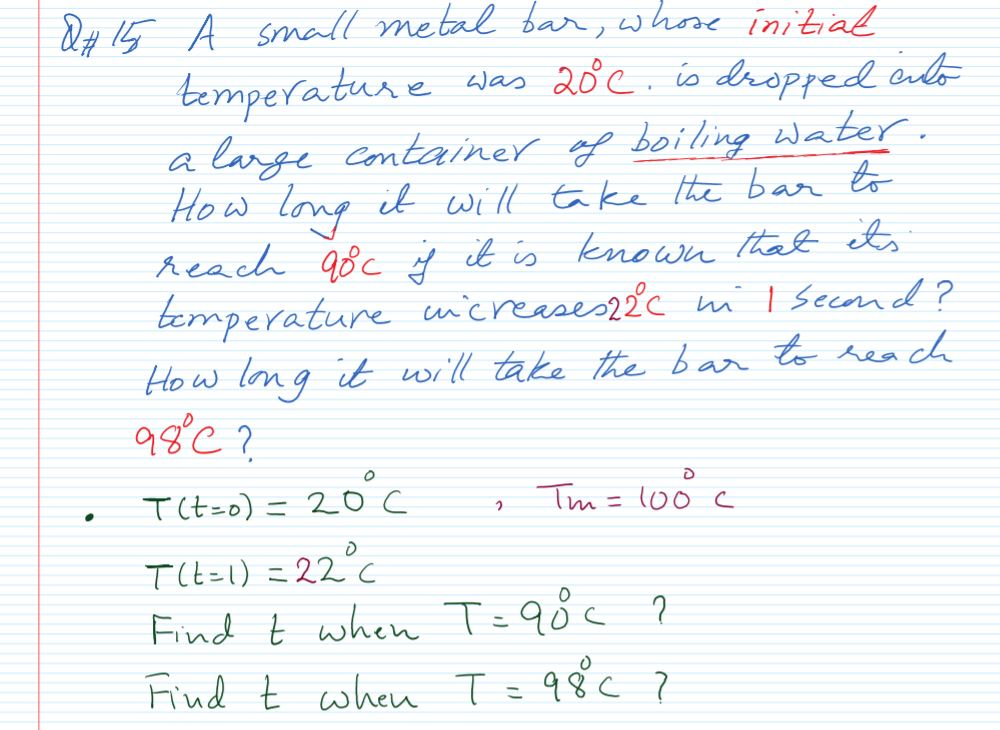 Q# 15 A small metal bar, whose initial
temperature was 20°C. is dropped into
a large container of boiling water.
How long it will take the bar to
reach 90°C if it is known that its
temperature increases 22°C in 1 second?
How long it will take the bar to reach
98°C?
• T(t=0) = 20°C , Tm = 100°C
T(t=1) = 22°C
Find t when T = 90°C ?
Find t when T = 98°C ?